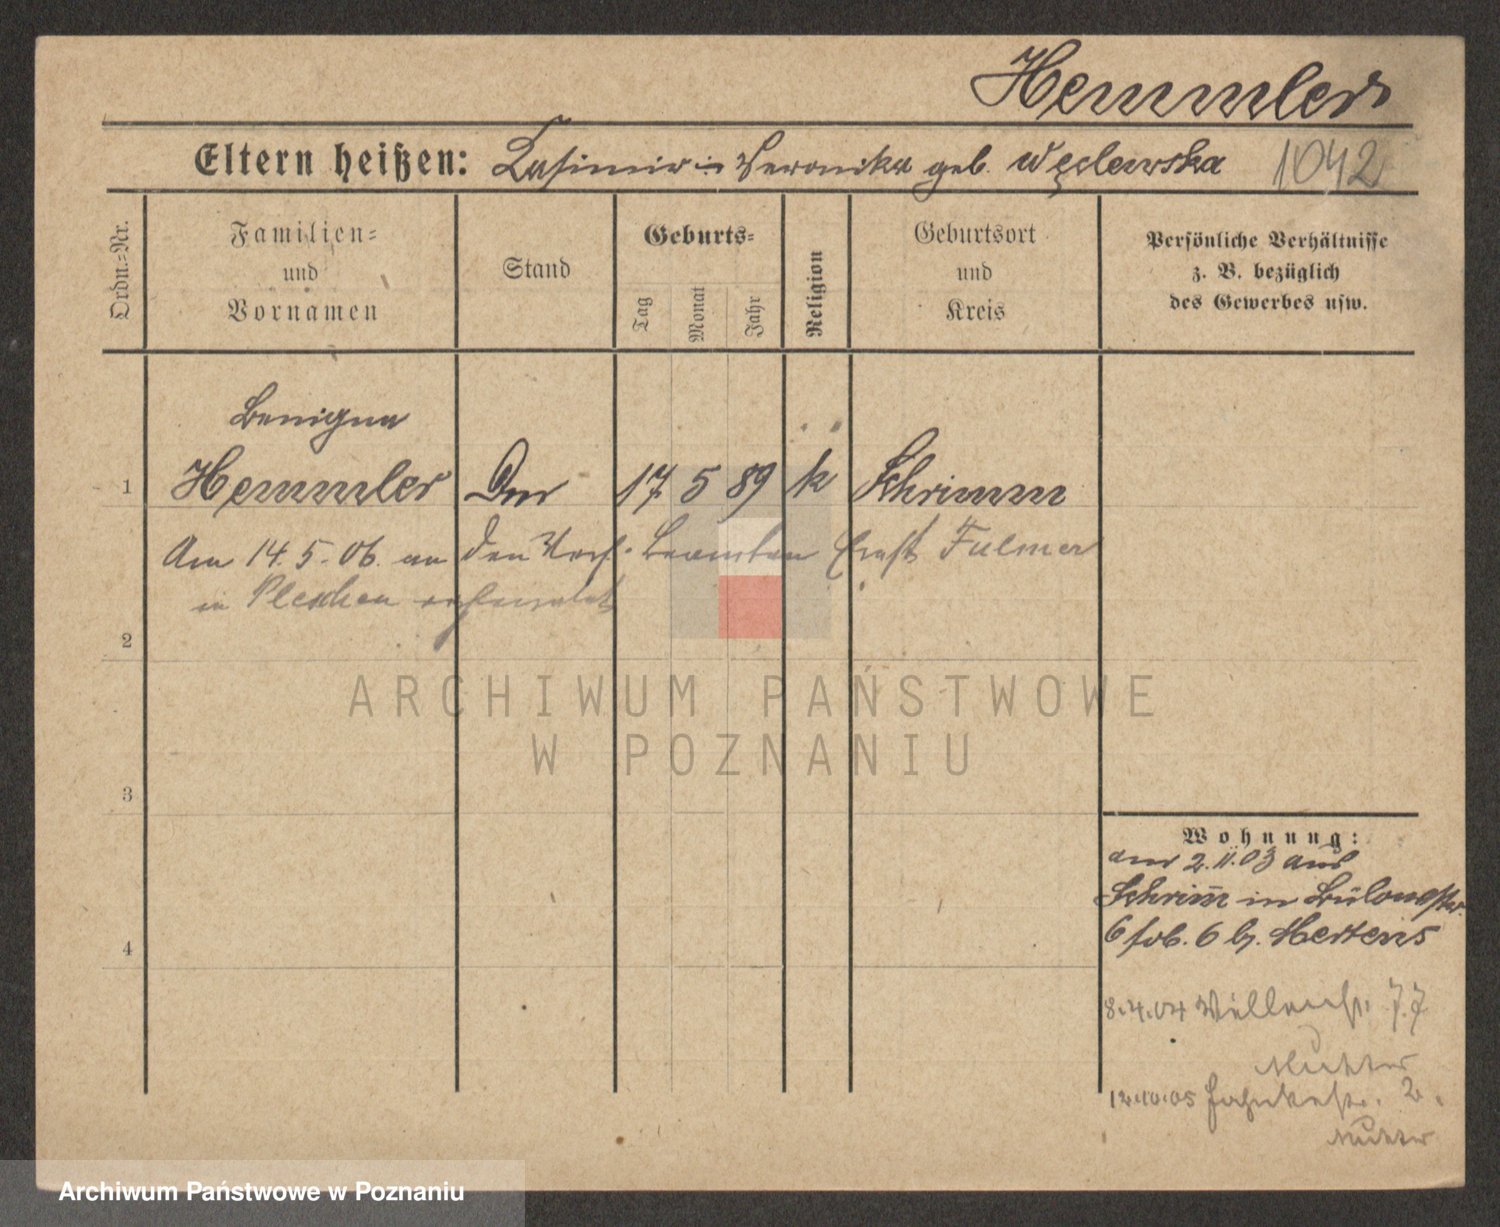 Hemmler
Eltern heißen: Kasimir u Veronika geb. Węclewska 1042
Ordn.-Nr.
Familien-
und
Vornamen
Stand
Geburts-
Tag
Monat
Jahr
Religion
Geburtsort
und
Kreis
Persönliche Verhältnisse
z. B. bezüglich
des Gewerbes usw.
Benigna
1 Hemmler 17 5 89 k Schrimm
Am 14.5.06. an den Beamten Ernst Fulmer
in Pleschen verheiratet
2
ARCHIWUM PAŃSTWOWE
W POZNANIU
3
Wohnung:
am 2.11.03 aus
Schrim̄ in Bülowstr.
6 b. Mertens
4
8.4.04 77
Mutter
12.10.05 2.
Mutter
Archiwum Państwowe w Poznaniu